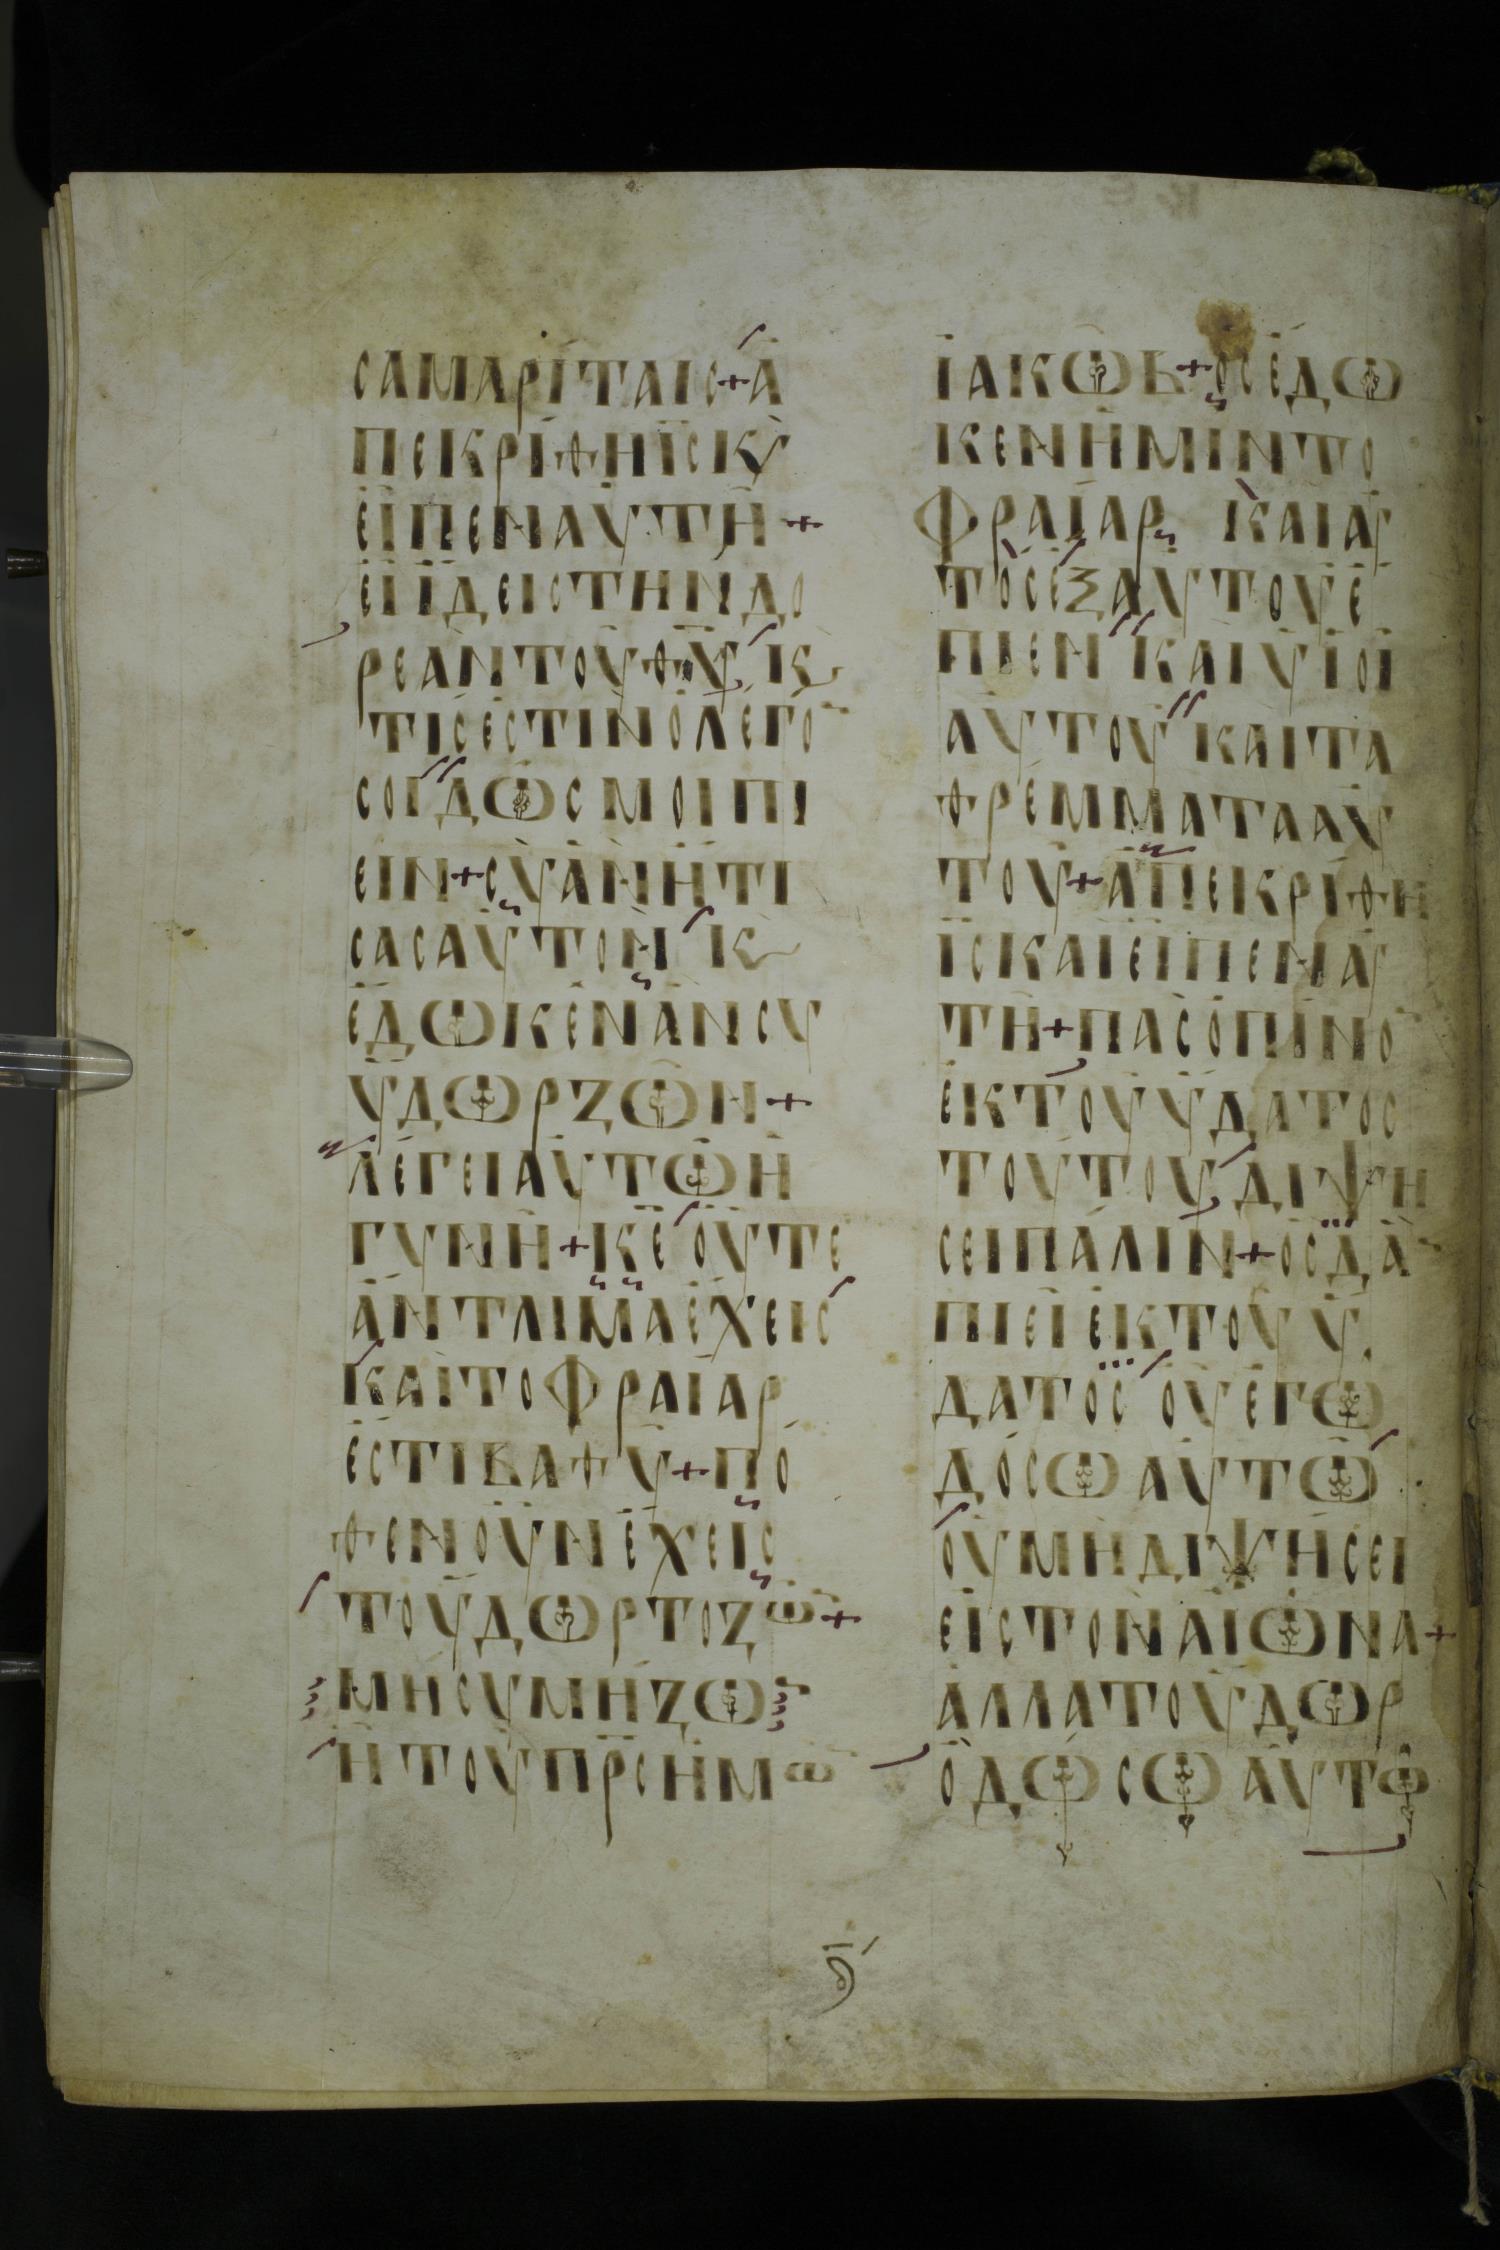 ϹΑΜΑΡΙΤΑΙϹ+Α
ΠΕΚΡΙΘΗΙϹΚΥ
ΕΙΠΕΝΑΥΤΗ+
ΕΙΪΔΕΙϹΤΗΝΔΟ
ΡΕΑΝΤΟΥΘΥΚ
ΤΙϹΕϹΤΙΝΟΛΕΓΟ
ϹΟΙΔΩϹΜΟΙΠΙ
ΕΙΝ+ϹΥΑΝΗΤΙ
ϹΑϹΑΥΤΟΝΚ
ΕΔΩΚΕΝΑΝϹΥ
ΥΔΩΡΖΩΝ+
ΛΕΓΕΙΑΥΤΩΗ
ΓΥΝΗ+ΚΕΟΥΤΕ
ΑΝΤΛΙΜΑΕΧΕΙϹ
ΚΑΙΤΟΦΡΑΙΑΡ
ΕϹΤΙΒΑΘΥ+ΠΟ
ΘΕΝΟΥΝΕΧΕΙϹ
ΤΟΥΔΩΡΤΟΖΩ+
ΜΗϹΥΜΗΖΩ
ΗΤΟΥΠΡϹΗΜΩ
ΙΑΚΩΒ+ΟϹΕΔΩ
ΚΕΝΗΜΙΝΤΟ
ΦΡΑΙΑΡ ΚΑΙΑΥ
ΤΟϹΕΞΑΥΤΟΥΕ
ΠΙΕΝΚΑΙΥΙΟΙ
ΑΥΤΟΥΚΑΙΤΑ
ΘΡΕΜΜΑΤΑΑΥ
ΤΟΥ+ΑΠΕΚΡΙΘΗ
ΙϹΚΑΙΕΙΠΕΝΑΥ
ΤΗ+ΠΑϹΟΠΙΝΟ
ΕΚΤΟΥΥΔΑΤΟϹ
ΤΟΥΤΟΥΔΙΨΗ
ϹΕΙΠΑΛΙΝ+ΟϹΔΑ
ΠΙΕΙΕΚΤΟΥΥ
ΔΑΤΟϹΟΥΕΓΩ
ΔΟϹΩΑΥΤΩ
ΟΥΜΗΔΙΨΗϹΕΙ
ΕΙϹΤΟΝΑΙΩΝΑ+
ΑΛΛΑΤΟΥΔΩΡ
ΟΔΩϹΩΑΥΤΩ